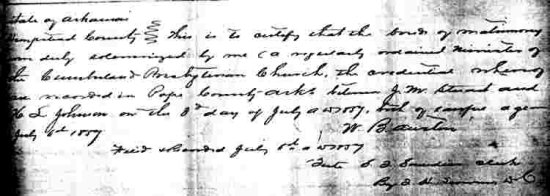 State of Arkansas
Hempstead County This is to certify that the bonds of matrimony
was duly solemnized by me (a regularly ordained Minister of
the Cumberland Presbyterian Church, the credential whereof
are recorded in Pope County Arks between J. M. Stuart and
L Johnson on the day of July 1887, both of lawful age
July 6th, 1887
W. B.
Filed & Recorded July 6th 1887
clerk
By D C